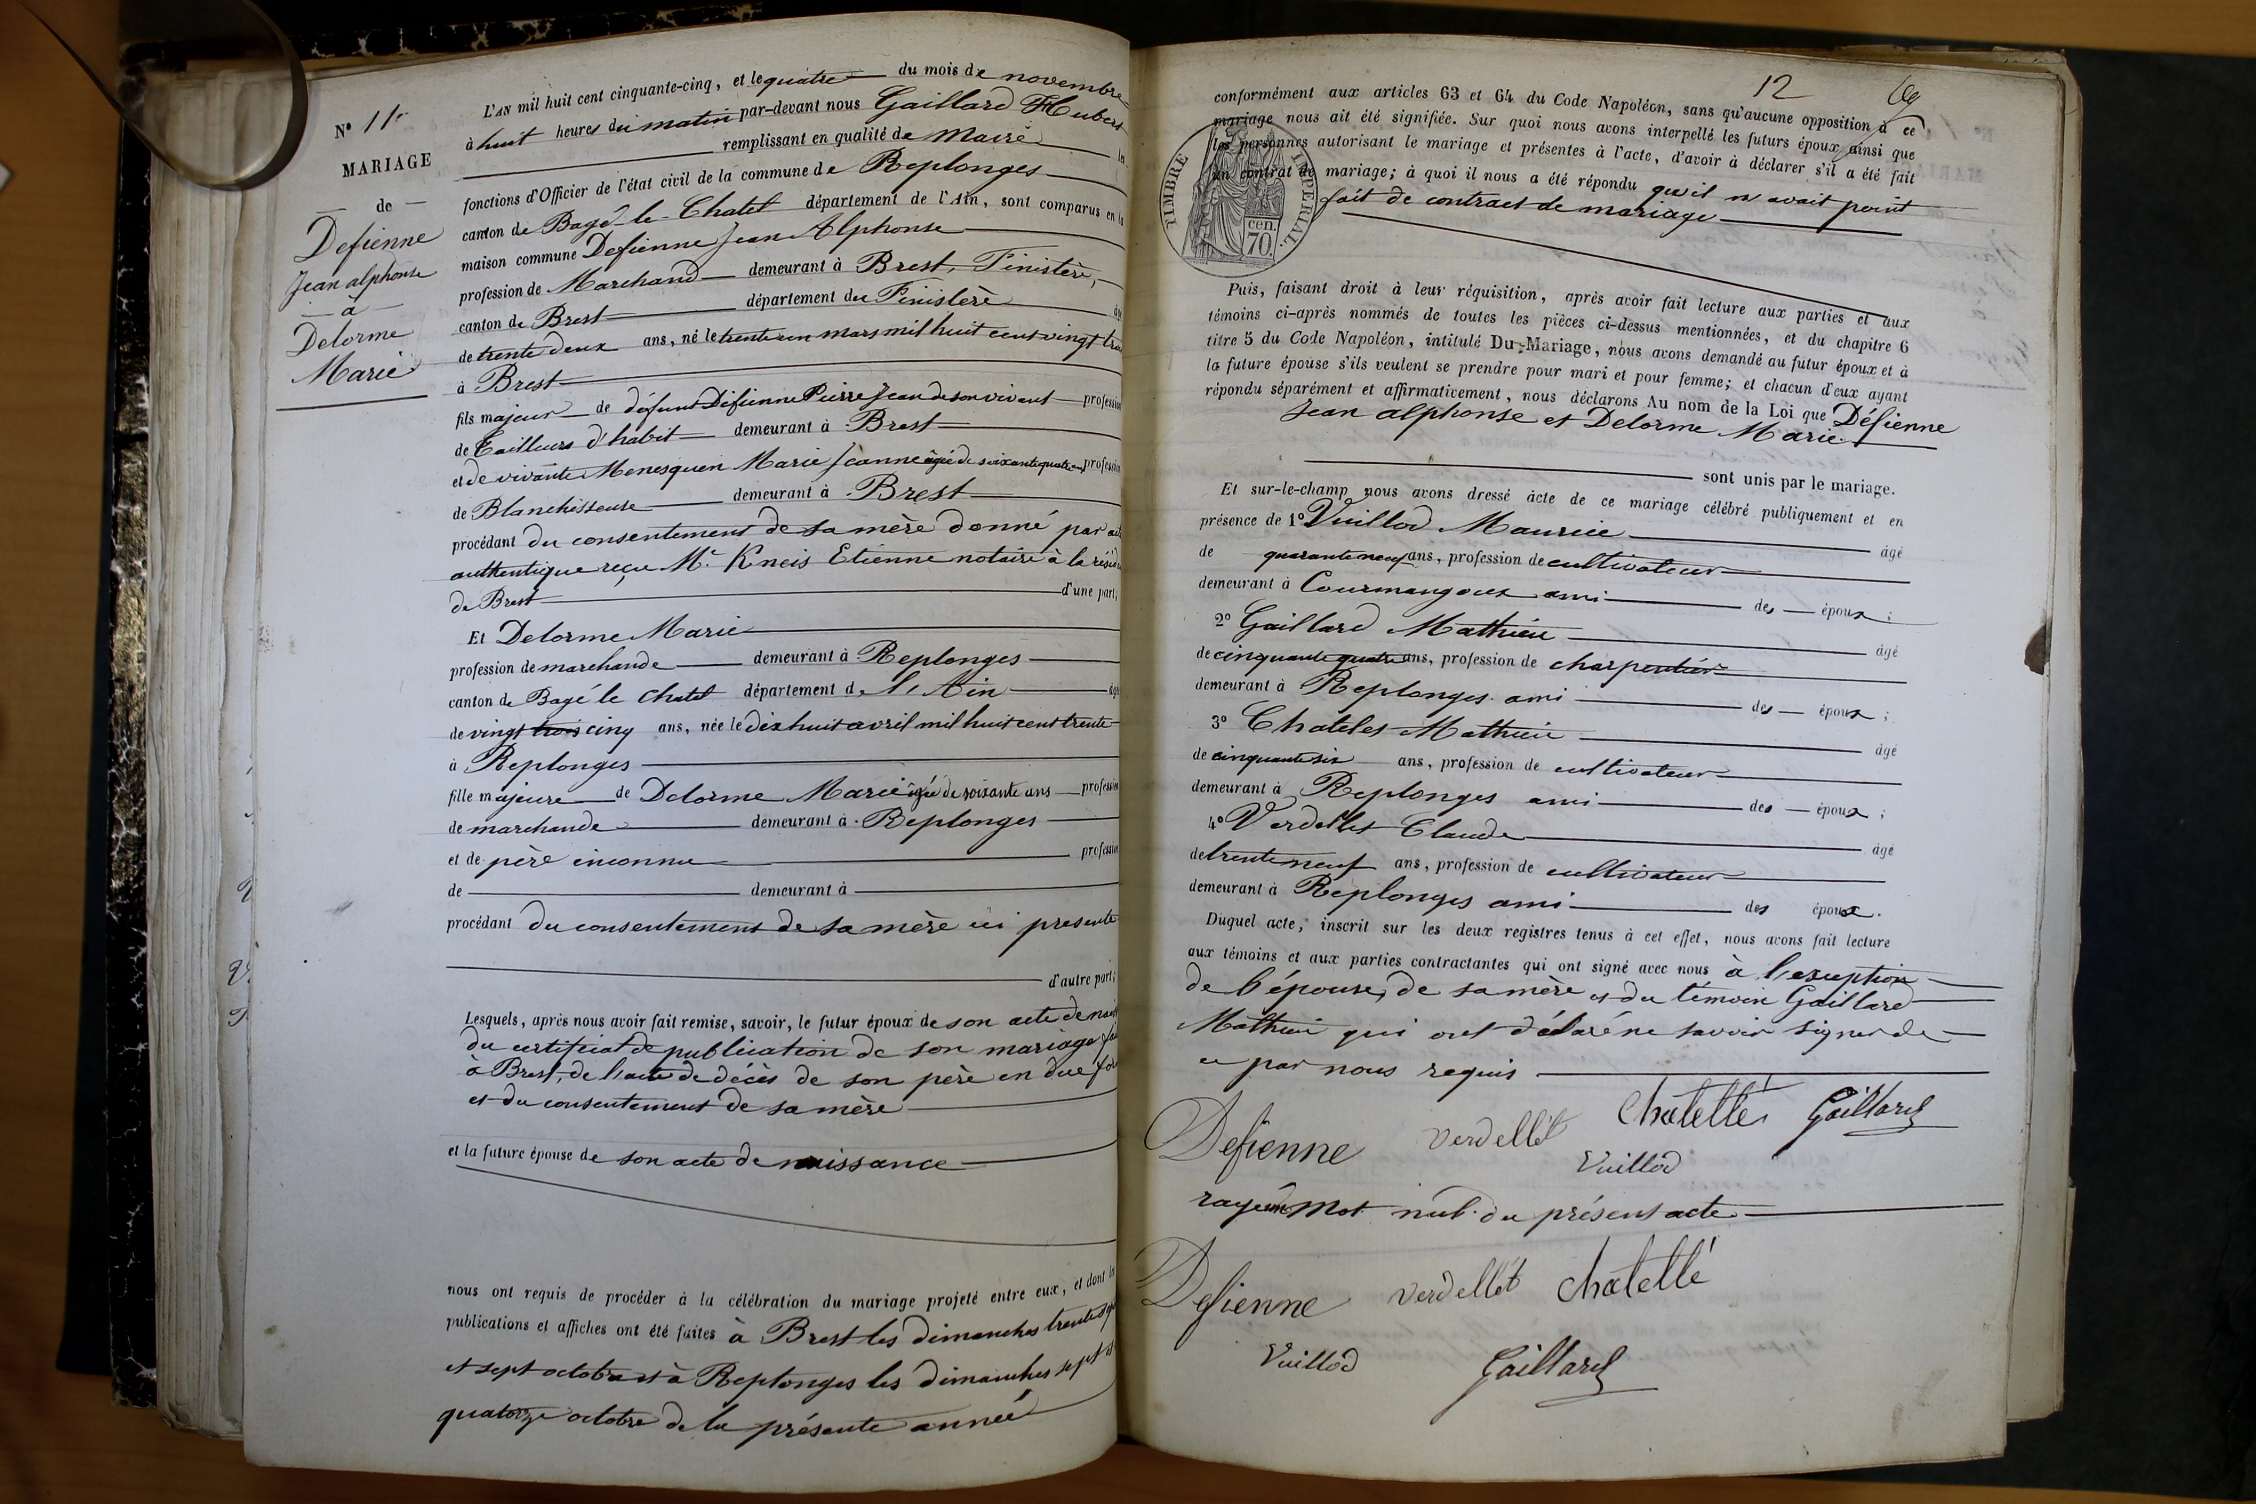 N° 11.
MARIAGE
de
Defienne
Jean alphonse
à
Delorme
Marie
L'AN mil huit cent cinquante-cinq, et le quatre du mois de novembre
à huit heures du matin par-devant nous Gaillard Hubert
remplissant en qualité de Maire les
fonctions d'Officier de l'état civil de la commune de Replonges
canton de Bagé-le-Chatel département de l'Ain, sont comparus en la
maison commune Defienne Jean Alphonse
profession de Marchand demeurant à Brest, Finistère,
canton de Brest département du Finistère âgé
de trente deux ans, né le trente un mars mil huit cent vingt trois
à Brest
fils majeur de défunt Défienne Pierre Jean de son vivant profession
de Tailleurs d'habit demeurant à Brest
et de vivante Menesguen Marie Jeanne âgée de soixante quatre ans profession
de Blanchisseuse demeurant à Brest
procédant du consentement de sa mère donné par acte
authentique reçu Me Kneis Etienne notaire à la résid
de Brest d'une part,
Et Delorme Marie
profession de marchande demeurant à Replonges
canton de Bagé le Chatel département de l'Ain âgé
de vingt trois cinq ans, née le dix huit avril mil huit cent trente
à Replonges
fille majeure de Delorme Marie âgée de soixante ans profession
de marchande demeurant à Replonges
et de père inconnu profession
de demeurant à
procédant du consentement de sa mère ici presente
d'autre part;
Lesquels, après nous avoir fait remise, savoir, le futur époux de son acte de nais
du certificat de publication de son mariage fai
à Brest, de l'acte de décès de son père en due for
et du consentement de sa mère
et la future épouse de son acte de naissance
nous ont requis de procéder à la célébration du mariage projeté entre eux, et dont les
publications et affiches ont été faites à Brest les dimanches trente sep
et sept octobre et à Replonges les dimanches sept et
quatorze octobre de la présente année
12
conformément aux articles 63 et 64 du Code Napoléon, sans qu'aucune opposition à ce
mariage nous ait été signifiée. Sur quoi nous avons interpellé les futurs époux ainsi que
les personnes autorisant le mariage et présentes à l'acte, d'avoir à déclarer s'il a été fait
un contrat de mariage; à quoi il nous a été répondu qu'il n'avait point
fait de contract de mariage
TIMBRE IMPERIAL.
cen.
70.
Puis, faisant droit à leur réquisition, après avoir fait lecture aux parties et aux
témoins ci-après nommés de toutes les pièces ci-dessus mentionnées, et du chapitre 6
titre 5 du Code Napoléon, intitulé Du Mariage, nous avons demandé au futur époux et à
la future épouse s'ils veulent se prendre pour mari et pour femme; et chacun d'eux ayant
répondu séparément et affirmativement, nous déclarons Au nom de la Loi que Défienne
Jean alphonse et Delorme Marie
sont unis par le mariage.
Et sur-le-champ nous avons dressé acte de ce mariage célébré publiquement et en
présence de 1° Vuillod Maurice âgé
de quarante neuf ans, profession de cultivateur
demeurant à Courmangoux ami des époux;
2° Gaillard Mathieu âgé
de cinquante quatre ans, profession de charpentier
demeurant à Replonges ami des époux;
3° Chatelet Mathieu âgé
de cinquante six ans, profession de cultivateur
demeurant à Replonges ami des époux;
4° Verdellet Claude âgé
de trente neuf ans, profession de cultivateur
demeurant à Replonges ami des époux.
Duquel acte, inscrit sur les deux registres tenus à cet effet, nous avons fait lecture
aux témoins et aux parties contractantes qui ont signé avec nous à l'exception
de l'épouse, de sa mère et du témoin Gaillard
Mathieu qui ont déclaré ne savoir signer de
ce par nous requis
Defienne verdellet Chatellé Gaillard
Vuillod
rayé un mot nul du présent acte
Defienne verdellet chatellé
Vuillod Gaillard